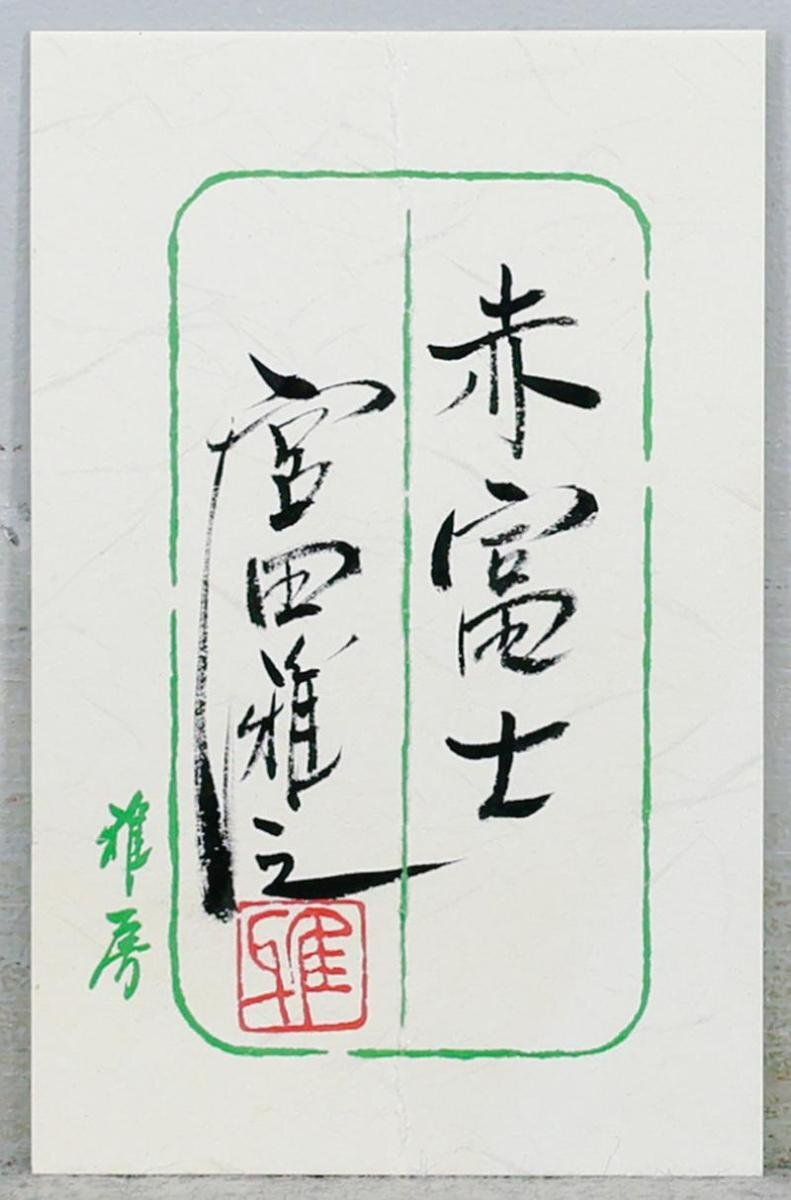 赤富士
宮田雅之
雅
雅房